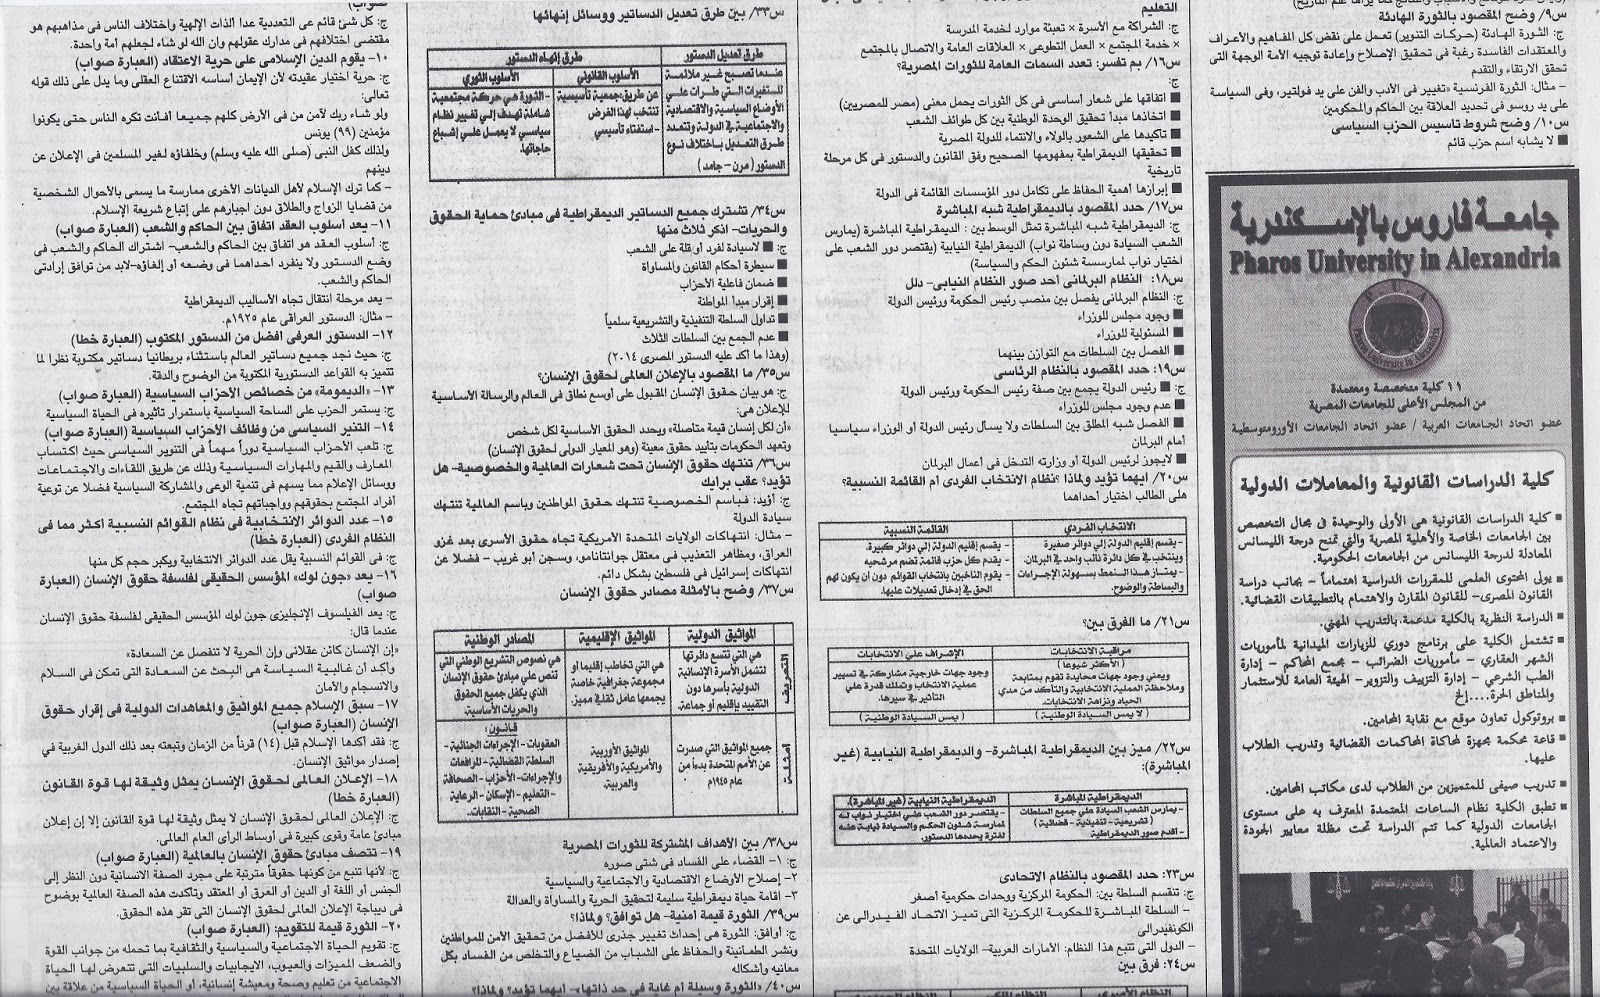 س٩/ وضح المقصود بالثورة الهادئة
ج: الثورة الهادئة (حركات التنوير) تعمل على نقض كل المفاهيم والأعراف
والمعتقدات الفاسدة رغبة فى تحقيق الإصلاح وإعادة توجيه الأمة الوجهة التى
تحقق الارتقاء والتقدم
– مثال: الثورة الفرنسية «تغيير فى الأدب والفن على يد فولتير، وفى السياسة
على يد روسو فى تحديد العلاقة بين الحاكم والمحكومين
س١٠/ وضح شروط تاسيس الحزب السياسى
■ لا يشابه اسم حزب قائم
جامعة فاروس بالإسكندرية
Pharos University in Alexandria
P U A
Pharos University in Alexandria
١١ كلية متخصصة ومعتمدة
من المجلس الأعلى للجامعات المصرية
عضو اتحاد الجامعات العربية / عضو اتحاد الجامعات الأورومتوسطية
كلية الدراسات القانونية والمعاملات الدولية
■ كلية الدراسات القانونية هى الأولى والوحيدة فى مجال التخصص
بين الجامعات الخاصة والأهلية المصرية والتى تمنح درجة الليسانس
المعادلة لدرجة الليسانس من الجامعات الحكومية.
■ يولى المحتوى العلمى للمقررات الدراسية اهتماماً – بجانب دراسة
القانون المصرى– للقانون المقارن والاهتمام بالتطبيقات القضائية.
■ الدراسة النظرية بالكلية مدعمة بالتدريب المهنى.
■ تشتمل الكلية على برنامج دوري للزيارات الميدانية لمأموريات
الشهر العقاري – مأموريات الضرائب – مجمع المحاكم – إدارة
الطب الشرعي – إدارة التزييف والتزوير– الهيئة العامة للاستثمار
والمناطق الحرة....إلخ
■ بروتوكول تعاون موقع مع نقابة المحامين.
■ قاعة محكمة مجهزة لمحاكاة المحاكمات القضائية وتدريب الطلاب
عليها.
■ تدريب صيفى للمتميزين من الطلاب لدى مكاتب المحامين.
■ تطبق الكلية نظام الساعات المعتمدة المعترف به على مستوى
الجامعات الدولية كما تتم الدراسة تحت مظلة معايير الجودة
والاعتماد العالمية.
التعليم
ج: الشراكة مع الأسرة × تعبئة موارد لخدمة المدرسة
× خدمة المجتمع × العمل التطوعى × العلاقات العامة والاتصال بالمجتمع
س١٦/ بم تفسر: تعدد السمات العامة للثورات المصرية؟
ج:
■ اتفاقها على شعار أساسى فى كل الثورات يحمل معنى (مصر للمصريين)
■ اتخاذها مبدأ تحقيق الوحدة الوطنية بين كل طوائف الشعب
■ تاكيدها على الشعور بالولاء والانتماء للدولة المصرية
■ تحقيقها الديمقراطية بمفهومها الصحيح وفق القانون والدستور فى كل مرحلة
تاريخية
■ إبرازها أهمية الحفاظ على تكامل دور المؤسسات القائمة فى الدولة
س١٧/ حدد المقصود بالديمقراطية شبه المباشرة
ج: الديمقراطية شبه المباشرة تمثل الوسط بين : الديمقراطية المباشرة (يمارس
الشعب السيادة دون وساطة نواب) الديمقراطية النيابية (يقتصر دور الشعب على
اختيار نواب لممارسسة شئون الحكم والسياسة)
س١٨: النظام البرلمانى احد صور النظام النيابى– دلل
ج: النظام البرلمانى يفصل بين منصب رئيس الحكومة ورئيس الدولة
■ وجود مجلس للوزراء
■ المسئولية للوزراء
■ الفصل بين السلطات مع التوازن بينهما
س١٩: حدد المقصود بالنظام الرئاسى
ج: ■ رئيس الدولة يجمع بين صفة رئيس الحكومة ورئيس الدولة
■ عدم وجود مجلس للوزراء
■ الفصل شبه المطلق بين السلطات ولا يسأل رئيس الدولة أو الوزراء سياسيا
أمام البرلمان
■ لايجوز لرئيس الدولة أو وزارته التدخل فى أعمال البرلمان
س٢٠/ ايهما تؤيد ولماذا ؟نظام الانتخاب الفردى ام القائمة النسبية؟
هلى الطالب اختيار أحداهما
الانتخاب الفردي
القائمة النسبية
– يقسم إقليم الدولة إلي دوائر صغيرة
وينتخب في كل دائرة نائب واحد في البرلمان.
– يمتاز هذا النمط بسهولة الإجراءات
والبساطة والوضوح.
– يقسم إقليم الدولة إلي دوائر كبيرة.
– يقدم كل حزب قائمة تضم مرشحيه
– يقوم الناخبين بانتخاب القوائم دون أن يكون لهم
الحق في إدخال تعديلات عليها.
س٢١/ ما الفرق بين؟
مراقبة الانتخابات
الإشراف علي الانتخابات
( الأكثر شيوعا )
ويعني وجود جهات محايدة تقوم بمتابعة
وملاحظة العملية الانتخابية والتأكد من مدي
الحياد ونزاهة الانتخابات.
( لا يمس السيادة الوطنية )
وجود جهات خارجية مشاركة في تسيير
عملية الانتخاب وتملك قدرة علي
التاثير في سيرها.
( يمس السيادة الوطنية )
س٢٢/ ميز بين الديمقراطية المباشرة– والديمقراطية النيابية (غير
المباشرة):
الديمقراطية المباشرة
الديمقراطية النيابية (غير المباشرة).
– يمارس الشعب السيادة علي جميع السلطات
( تشريعية – تنفيذية – قضائية )
– أقدم صور الديمقراطية
– يقتصر دور الشعب علي اختيار نواب له
لممارسة شئون الحكم والسيادة نيابة عنه
لفترة يحددها الدستور.
س٢٣: حدد المقصود بالنظام الاتحادى
ج: تنقسم السلطة بين: الحكومة المركزية ووحدات حكومية أصغر
– السلطة المباشرة للحكومة المركزية التى تميز الاتحاد الفيدرالى عن
الكونفيدرالى
– الدول التى تتبع هذا النظام: الأمارات العربية– الولايات المتحدة
س٢٤: فرق بين
س٣٣/ بين طرق تعديل الدساتير ووسائل إنهائها
طرق تعديل الدستور
طرق إنهاء الدستور
عندما تصبح غير ملائمة
للتغيرات التي طرات علي
الأوضاع السياسية والاقتصادية
والاجتماعية في الدولة وتتعدد
طرق التعديل باختلاف نوع
الدستور ( مرن – جامد )
الأسلوب القانوني
عن طريق:جمعية تأسيسية
تنتخب لهذا الغرض
– استفتاء تأسيسي
الأسلوب الثوري
– الثورة هي حركة مجتمعية
شاملة تهدف إلي تغيير نظام
سياسي لا يعمل علي إشباع
حاجاتها.
س٣٤/ تشترك جميع الدساتير الديمقراطية فى مبادئ حماية الحقوق
والحريات– اذكر ثلاث منها
ج: ■ لاسيادة لفرد أو قلة على الشعب
■ سيطرة أحكام القانون والمساواة
■ ضمان فاعلية الأحزاب
■ إقرار مبدأ المواطنة
■ تداول السلطة التنفيذية والتشريعية سلمياً
■ عدم الجمع بين السلطات الثلاث
(وهذا ما اكد عليه الدستور المصرى ٢٠١٤)
س٣٥/ ما المقصود بالإعلان العالمى لحقوق الإنسان؟
ج: هو بيان حقوق الإنسان المقبول على أوسع نطاق فى العالم والرسالة الأساسية
للإعلان هى:
«أن لكل إنسان قيمة متاصلة» ويحدد الحقوق الأساسية لكل شخص
وتعهد الحكومات بتأييد حقوق معينة (وهو المعيار الدولى لحقوق الإنسان)
س٣٦/ تنتهك حقوق الإنسان تحت شعارات العالمية والخصوصية– هل
تؤيد؟ عقب برايك
ج: أؤيد: فباسم الخصوصية تنتهك حقوق المواطنين وباسم العالمية تنتهك
سيادة الدولة
– مثال: انتهاكات الولايات المتحدة الأمريكية تجاه حقوق الأسرى بعد غزو
العراق، ومظاهر التعذيب فى معتقل جوانتانامو، وسجن أبو غريب – فضلا عن
انتهاكات إسرائيل فى فلسطين بشكل دائم.
س٣٧/ وضح بالأمثلة مصادر حقوق الإنسان
المواثيق الدولية
المواثيق الإقليمية
المصادر الوطنية
التعريف
هي التي تتسع دائرتها
لتشمل الأسرة الإنسانية
الدولية بأسرها دون
التقييد بإقليم أو جماعة.
هي التي تخاطب إقليما أو
مجموعة جغرافية خاصة
يجمعها عامل ثقافي مميز.
هي نصوص التشريع الوطني التي
تنص علي مبادئ حقوق الإنسان
الذي يكفل جميع الحقوق
والحريات الأساسية.
أمثلة
جميع المواثيق التي صدرت
عن الأمم المتحدة بدءاً من
عام ١٩٤٥م
المواثيق الأوربية
والأمريكية والأفريقية
والعربية.
قانون:
العقوبات – الإجراءات الجنائية –
السلطة القضائية – المرافعات
والإجراءات– الأحزاب – الصحافة
– التعليم – الإسكان – الرعاية
الصحية – النقابات.
س٣٨/ بين الأهداف المشتركة للثورات المصرية
ج: ١– القضاء على الفساد فى شتى صوره
٢– إصلاح الأوضاع الاقتصادية والاجتماعية والسياسية
٣– اقامة حياة ديمقراطية سليمة لتحقيق الحرية والمساواة والعدالة
س٣٩/ الثورة قيمة امنية– هل توافق؟ ولماذا؟
ج: أوافق: الثورة هى إحداث تغيير جذرى للأفضل من تحقيق الأمن للمواطنين
ونشر الطمانينة والحفاظ على الشباب من الضياع والتخلص من الفساد بكل
معانيه وأشكاله
س٤٠/ «الثورة وسيلة أم غاية فى حد ذاتها»– ايهما تؤيد؟ ولماذا؟
صواب)
ج: كل شئ قائم عى التعددية عدا الذات الإلهية واختلاف الناس فى مذاهبهم هو
مقتضى اختلافهم فى مدارك عقولهم وان الله لو شاء لجعلهم امة واحدة.
١٠– يقوم الدين الإسلامى على حرية الاعتقاد (العبارة صواب)
ج: حرية اختيار عقيدته لأن الإيمان أساسه الاقتناع العقلى وما يدل على ذلك قوله
تعالى:
ولو شاء ربك لآمن من فى الأرض كلهم جميعا أفانت تكره الناس حتى يكونوا
مؤمنين (٩٩) يونس
ولذلك كفل النبى (صلى الله عليه وسلم) وخلفاؤه لغير المسلمين فى الإعلان عن
دينهم
– كما ترك الإسلام لأهل الديانات الأخرى ممارسة ما يسمى بالأحوال الشخصية
من قضايا الزواج والطلاق دون اجبارهم على إتباع شريعة الإسلام.
١١– يعد أسلوب العقد اتفاق بين الحاكم والشعب (العبارة صواب)
ج: أسلوب العقد هو اتفاق بين الحاكم والشعب– اشتراك الحاكم والشعب فى
وضع الدستور ولا ينفرد احداهما فى وضعه أو إلغاؤه–لابد من توافق إرادتى
الحاكم والشعب.
– يعد مرحلة انتقال تجاه الأساليب الديمقراطية
– مثال: الدستور العراقى عام ١٩٢٥م.
١٢– الدستور العرفى افضل من الدستور المكتوب (العبارة خطا)
ج: حيث نجد جميع دساتير العالم باستثناء بريطانيا دساتير مكتوبة نظرا لما
تتميز به القواعد الدستورية المكتوبة من الوضوح والدقة.
١٣– «الديمومة» من خصائص الأحزاب السياسية (العبارة صواب)
ج: يستمر الحزب على الساحة السياسية باستمرار تاثيره فى الحياة السياسية
١٤– التنير السياسى من وظائف الأحزاب السياسية (العبارة صواب)
ج: تلعب الأحزاب السياسية دوراً مهماً فى التنوير السياسى حيث اكتساب
المعارف والقيم والمهارات السياسية وذلك عن طريق اللقاءات والاجتماعات
ووسائل الإعلام مما يسهم فى تنمية الوعى والمشاركة السياسية فضلا عن توعية
أفراد المجتمع بحقوقهم وواجباتهم تجاه المجتمع.
١٥– عدد الدوائر الانتخابية فى نظام القوائم النسبية اكثر مما فى
النظام الفردى (العبارة خطا)
ج: فى القوائم النسبية يقل عدد الدوائر الانتخابية ويكبر حجم كل منها
١٦– يعد «جون لوك» المؤسس الحقيقى لفلسفة حقوق الإنسان (العبارة
صواب)
ج: يعد الفيلسوف الإنجليزى جون لوك المؤسس الحقيقى لفلسفة حقوق الإنسان
عندما قال:
«إن الإنسان كائن عقلانى وإن الحرية لا تنفصل عن السعادة»
وأكد ان غالبية السياسة هى البحث عن السعادة التى تمكن فى السلام
والانسجام والأمان
١٧– سبق الإسلام جميع المواثيق والمعاهدات الدولية فى إقرار حقوق
الإنسان (العبارة صواب)
ج: فقد أكدها الإسلام قبل (١٤) قرناً من الزمان وتبعته بعد ذلك الدول الغربية في
إصدار مواثيق الإنسان.
١٨– الإعلان العالمى لحقوق الإنسان يمثل وثيقة لها قوة القانون
(العبارة خطا)
ج: الإعلان العالمى لحقوق الإنسان لا يمثل وثيقة لها قوة القانون إلا إن إعلان
مبادئ عامة وقوى كبيرة فى أوساط الرأى العام العالمى.
١٩– تتصف مبادئ حقوق الإنسان بالعالمية (العبارة صواب)
ج: لأنها تنبع من كونها حقوقاً مترتبة على مجرد الصفة الانسانية دون النظر إلى
الجنس أو اللغة أو الدين أو العرق أو المعتقد وتأكدت هذه الصفة العالمية بوضوح
فى ديباجة الإعلان العالمى لحقوق الإنسان التى تقر هذه الحقوق.
٢٠– الثورة قيمة للتقويم: (العبارة صواب)
ج: تقويم الحياة الاجتماعية والسياسية والثقافية بما تحمله من جوانب القوة
والضعف المميزات والعيوب، الايجابيات والسلبيات التى تتعرض لها الحياة
الاجتماعية من تعليم وصحة ومعيشة إنسانية، أو الحياة السياسية من علاقة بين